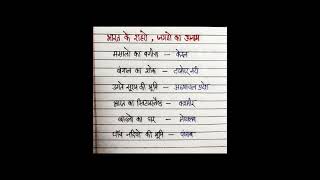 भारत के शहरो , जगहो का उपनाम
मसालो का बगीचा - केरल
बंगाल का शोक - दामोदर नदी
उगते सूरज की भूमि - अरुणाचल प्रदेश
भारत का स्विटजरलैंड - कश्मीर
बादलो का घर - मेघालय
पाँच नदियो की भूमि - पंजाब